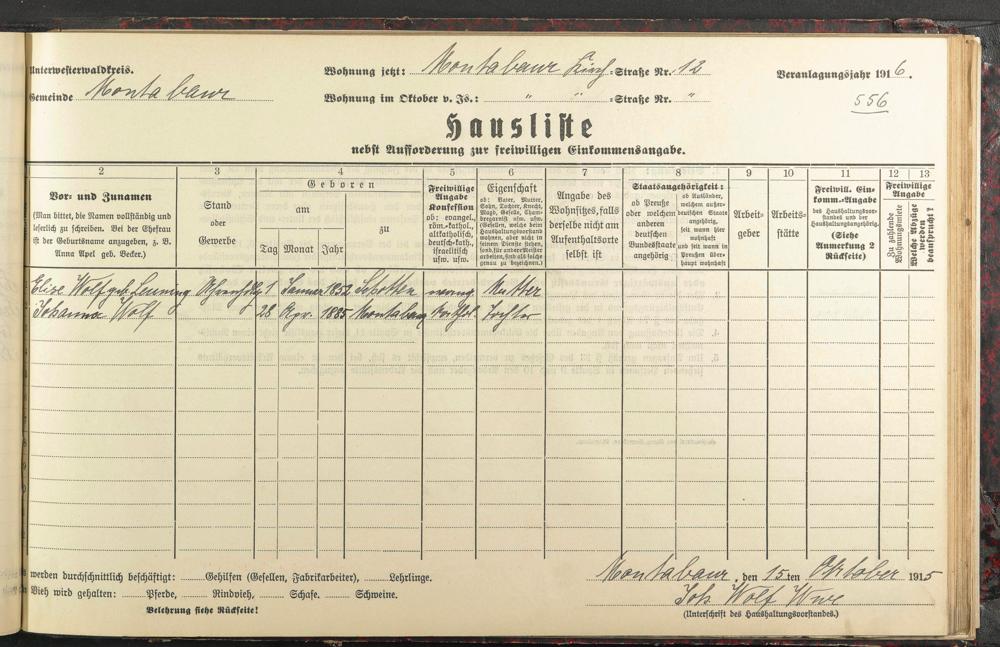 Unterwesterwaldkreis.
Gemeinde Montabaur
Wohnung jetzt: Montabaur Kirch-Straße Nr. 12
Wohnung im Oktober v. Js.: " " -Straße Nr. "
Veranlagungsjahr 1916.
556
Hausliste
nebst Aufforderung zur freiwilligen Einkommensangabe.
2 3 4 5 6 7 8 9 10 11 12 13
Vor- und Zunamen
(Man bittet, die Namen vollständig und
leserlich zu schreiben. Bei der Ehefrau
ist der Geburtsname anzugeben, z. B.
Anna Apel geb. Becker.)
Stand
oder
Gewerbe
Geboren
am
zu
Tag Monat Jahr
Freiwillige
Angabe
Konfession
ob: evangel.,
röm.-kathol.,
altkatholisch,
deutsch-kath.,
israelitisch
usw. usw.
Eigenschaft
ob: Vater, Mutter,
Sohn, Tochter, Knecht,
Magd, Geselle, Cham-
bregarnist usw. usw.
(Gesellen, welche beim
Haushaltungsvorstand
wohnen, aber nicht in
seinem Dienste stehen,
sond. für andere Meister
arbeiten, sind als solche
genau zu bezeichnen.)
Angabe des
Wohnsitzes, falls
derselbe nicht am
Aufenthaltsorte
selbst ist
Staatsangehörigkeit:
ob Preuße
oder welchem
anderen
deutschen
Bundesstaate
angehörig
ob Ausländer,
welchem außer-
deutschen Staate
angehörig,
seit wann hier
wohnhaft
und seit wann in
Preußen über-
haupt wohnhaft
Arbeit-
geber
Arbeits-
stätte
Freiwill. Ein-
komm.-Angabe
des Haushaltungsvor-
standes und der
Haushaltungsangehörig.
(Siehe
Anmerkung 2
Rückseite)
Freiwillige
Angabe
Zu zahlende
Wohnungsmiete
Welche Abzüge
werden
beansprucht?
Elise Wolf geb. 1 Januar 1852 evang. Mutter
Johanna Wolf 28 Apr. 1885 Montabaur Kathol. Tochter
werden durchschnittlich beschäftigt: Gehilfen (Gesellen, Fabrikarbeiter), Lehrlinge.
Vieh wird gehalten: Pferde, Rindvieh, Schafe. Schweine.
Belehrung siehe Rückseite!
Montabaur, den 15.ten Oktober 1915
Joh. Wolf Wwe
(Unterschrift des Haushaltungsvorstandes.)